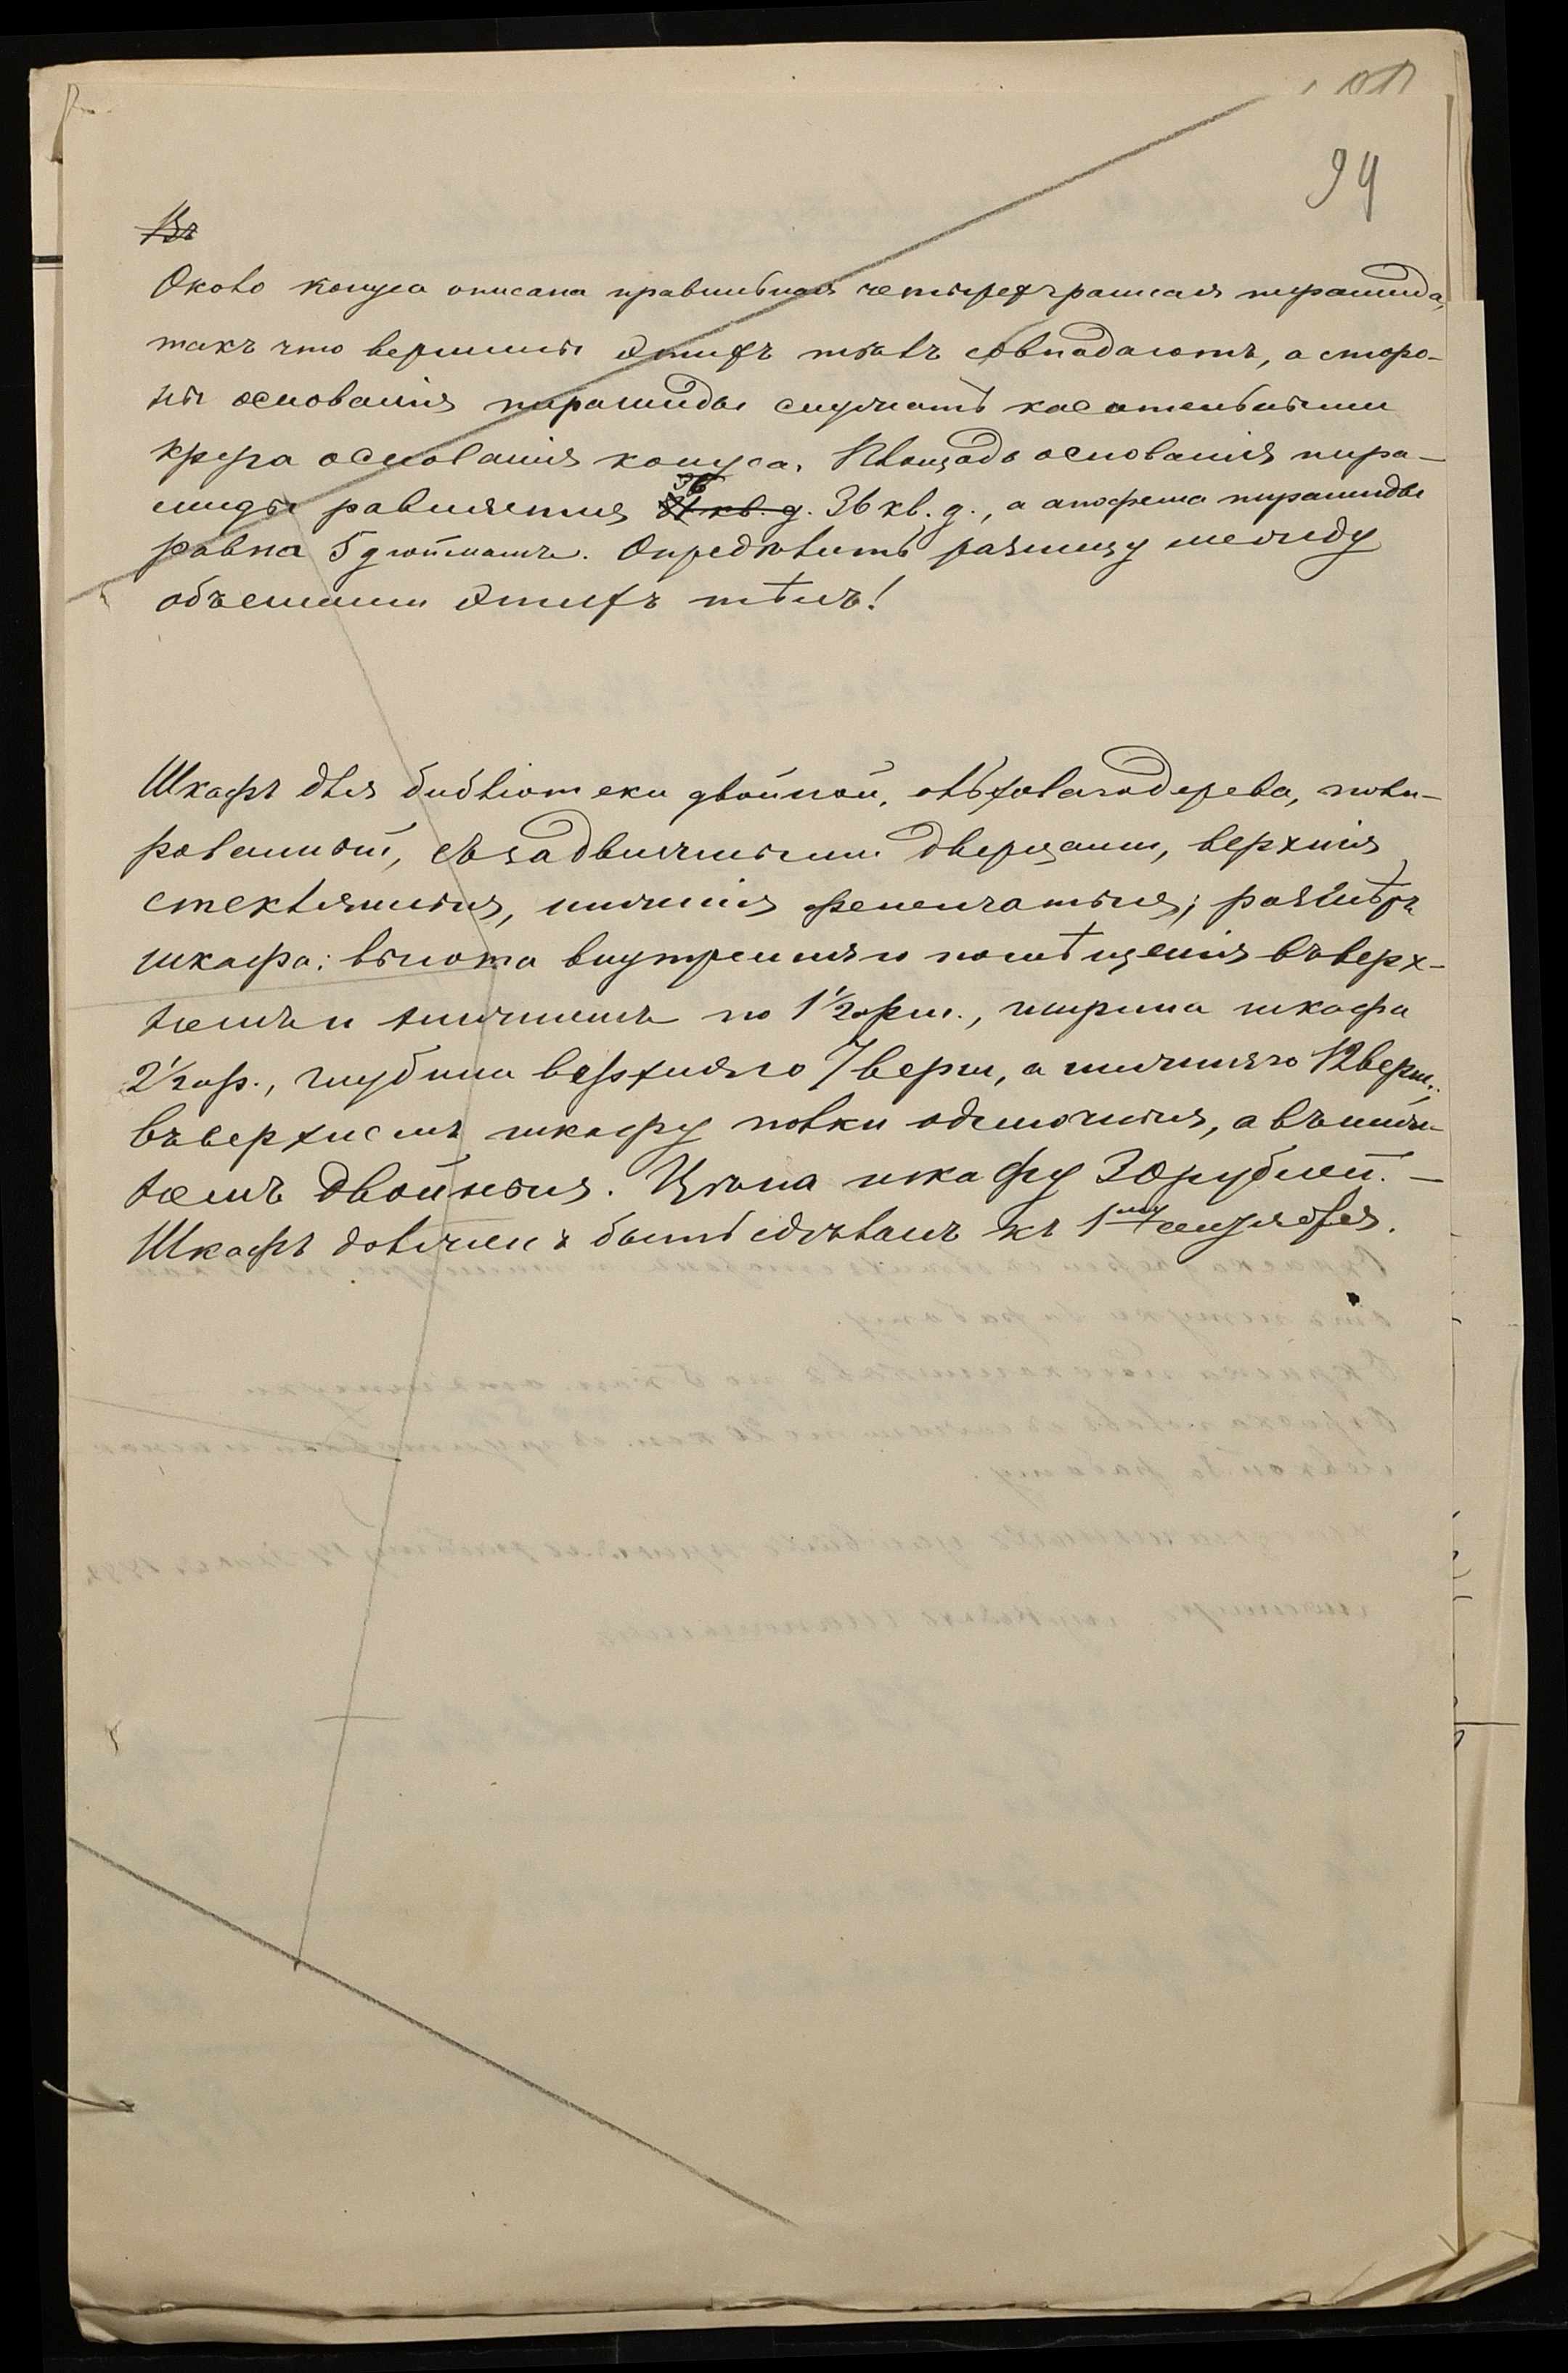 94
Въ
Около конуса описана правильная четырехъгранная пирамида,
такъ что вершины этихъ тѣлъ совпадаютъ, а сторо-
ны основанія пирамиды служатъ касательными
круга основанія конуса. Площадь основанія пира-
миды равняется кв. д. 36 кв. д., а апофема пирамиды
равна 5 дюймамъ. Опредѣлить разницу между
объемами этихъ тѣлъ!
Шкафъ для библіотеки двойной, ольховаго дерева, поли-
рованный, съ задвижными дверцами, верхнія
стеклянныя, нижнія филенчатыя; размѣръ
шкафа: высота внутренняго помѣщенія въ верх-
немъ и нижнемъ по 1½ арш., ширина шкафа
2½ ар., глубина верхняго 7 верш, а нижняго 12 верш.
въ верхнемъ шкафу полки одиночныя, а въ ниж-
немъ двойныя. Цѣна шкафу 30 рублей. —
Шкафъ долженъ быть сдѣланъ къ 1му сентября.